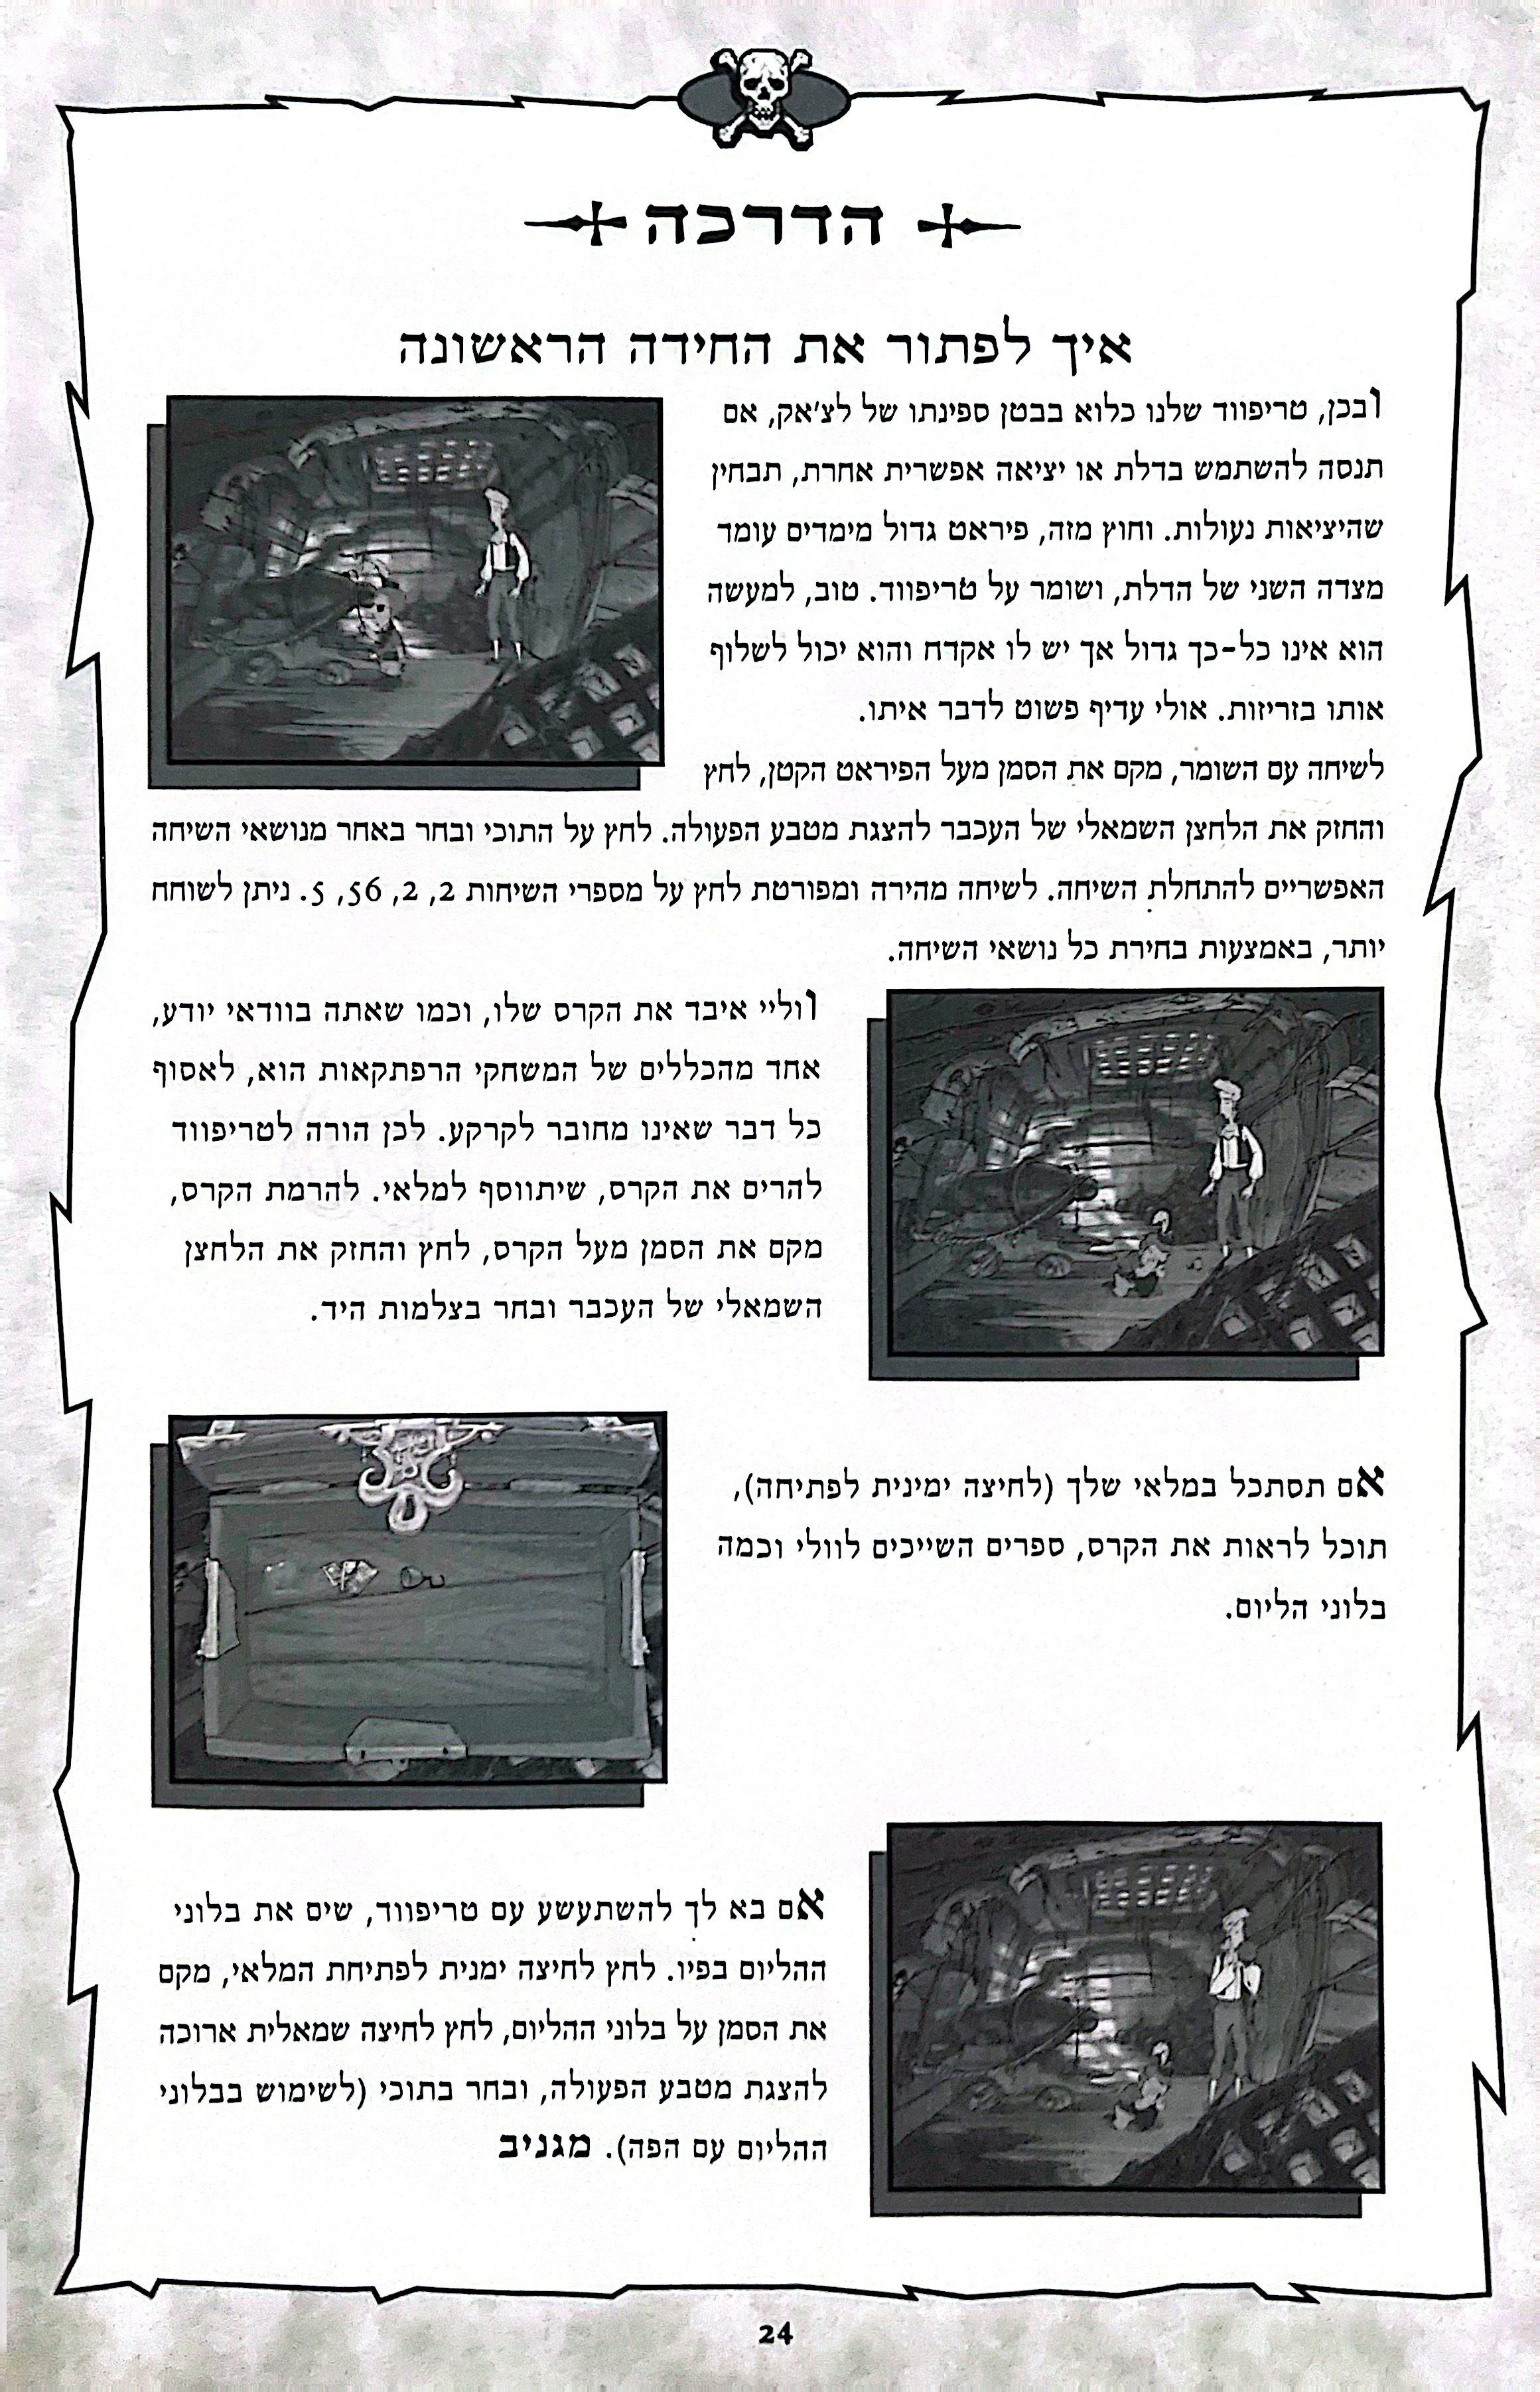 הדרכה
איך לפתור את החידה הראשונה
ובכן, טריפווד שלנו כלוא בבטן ספינתו של לצ'אק, אם
תנסה להשתמש בדלת או יציאה אפשרית אחרת, תבחין
שהיציאות נעולות. וחוץ מזה, פיראט גדול מימדים עומד
מצדה השני של הדלת, ושומר על טריפווד. טוב, למעשה
הוא אינו כל-כך גדול אך יש לו אקדח והוא יכול לשלוף
אותו בזריזות. אולי עדיף פשוט לדבר איתו.
לשיחה עם השומר, מקם את הסמן מעל הפיראט הקטן, לחץ
והחזק את הלחצן השמאלי של העכבר להצגת מטבע הפעולה. לחץ על התוכי ובחר באחר מנושאי השיחה
האפשריים להתחלת השיחה. לשיחה מהירה ומפורטת לחץ על מספרי השיחות 2, 2, 56, 5. ניתן לשוחח
יותר, באמצעות בחירת כל נושאי השיחה.
ווליי איבד את הקרס שלו, וכמו שאתה בוודאי יודע,
אחד מהכללים של המשחקי הרפתקאות הוא, לאסוף
כל דבר שאינו מחובר לקרקע. לכן הורה לטריפווד
להרים את הקרס, שיתווסף למלאי. להרמת הקרס,
מקם את הסמן מעל הקרס, לחץ והחזק את הלחצן
השמאלי של העכבר ובחר בצלמות היד.
אם תסתכל במלאי שלך (לחיצה ימינית לפתיחה),
תוכל לראות את הקרס, ספרים השייכים לוולי וכמה
בלוני הליום.
אם בא לך להשתעשע עם טריפווד, שים את בלוני
ההליום בפיו. לחץ לחיצה ימנית לפתיחת המלאי, מקם
את הסמן על בלוני ההליום, לחץ לחיצה שמאלית ארוכה
להצגת מטבע הפעולה, ובחר בתוכי (לשימוש בבלוני
ההליום עם הפה). מגניב
24